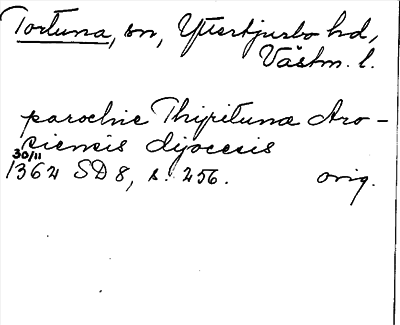 Tortuna, sn, Yttertjurbo hd,
Västm. l.
parochie Thijritunæ Aro-
siensis dijocesis
30/11
1364 SD 8, s. 256. orig.